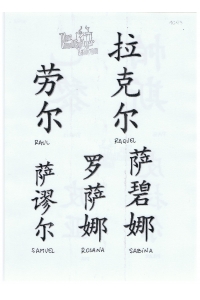 劳尔
RAUL
拉克尔
RAQUEL
萨谬尔
SAMUEL
罗萨娜
ROSANA
萨碧娜
SABINA